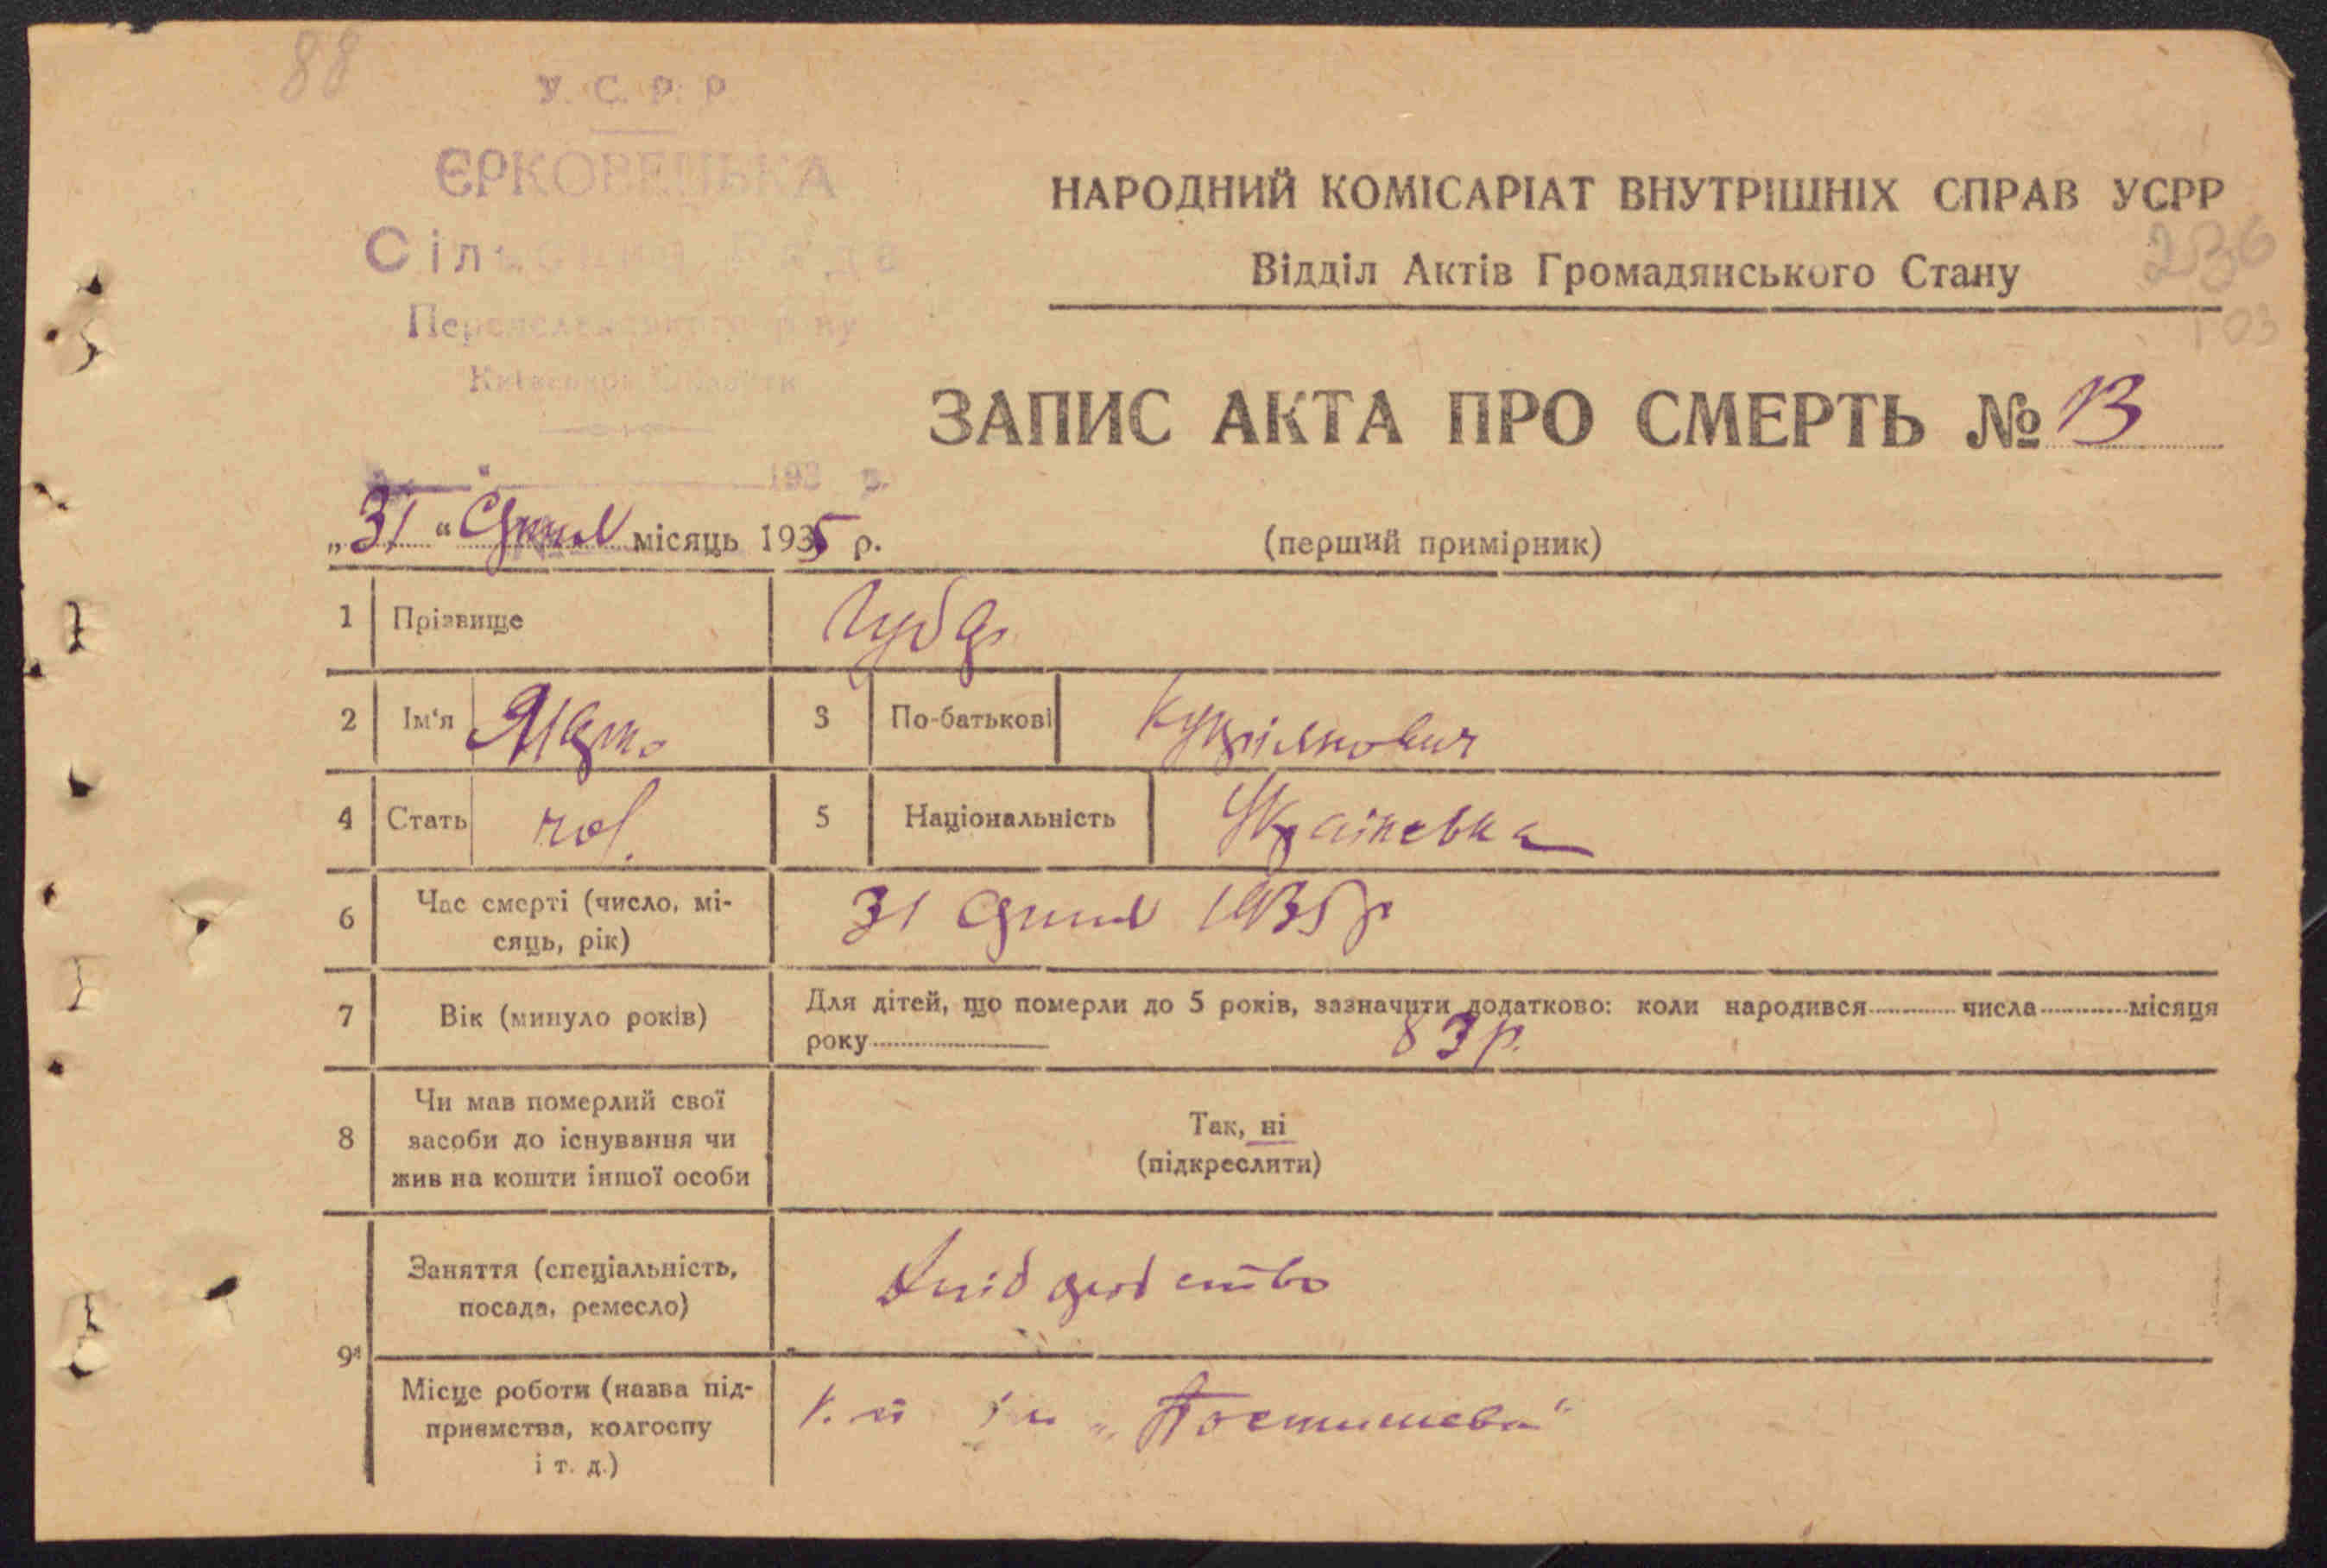 88
У. С. Р. Р.
ЄРКОВЕЦЬКА
Сільська Рада
Переяславського р-ну
Київської Области
НАРОДНИЙ КОМІСАРІАТ ВНУТРІШНІХ СПРАВ УСРР
Відділ Актів Громадянського Стану
236
103
ЗАПИС АКТА ПРО СМЕРТЬ № 13
193 р.
„31“ місяць 1935 р.
(перший примірник)
1 Прізвище Губар
2 Ім‘я 3 По-батькові
4 Стать чол. 5 Національність Українська
6 Час смерті (число, мі-
сяць, рік) 31 1935 р
7 Вік (минуло років) Для дітей, що померли до 5 років, зазначити додатково: коли народився числа місяця
року 83 р.
8 Чи мав померлий свої
засоби до існування чи
жив на кошти іншої особи
Так, ні
(підкреслити)
9 Заняття (спеціальність,
посада, ремесло) хліборобство
Місце роботи (назва під-
приємства, колгоспу
і т. д.) ім „Постишева“